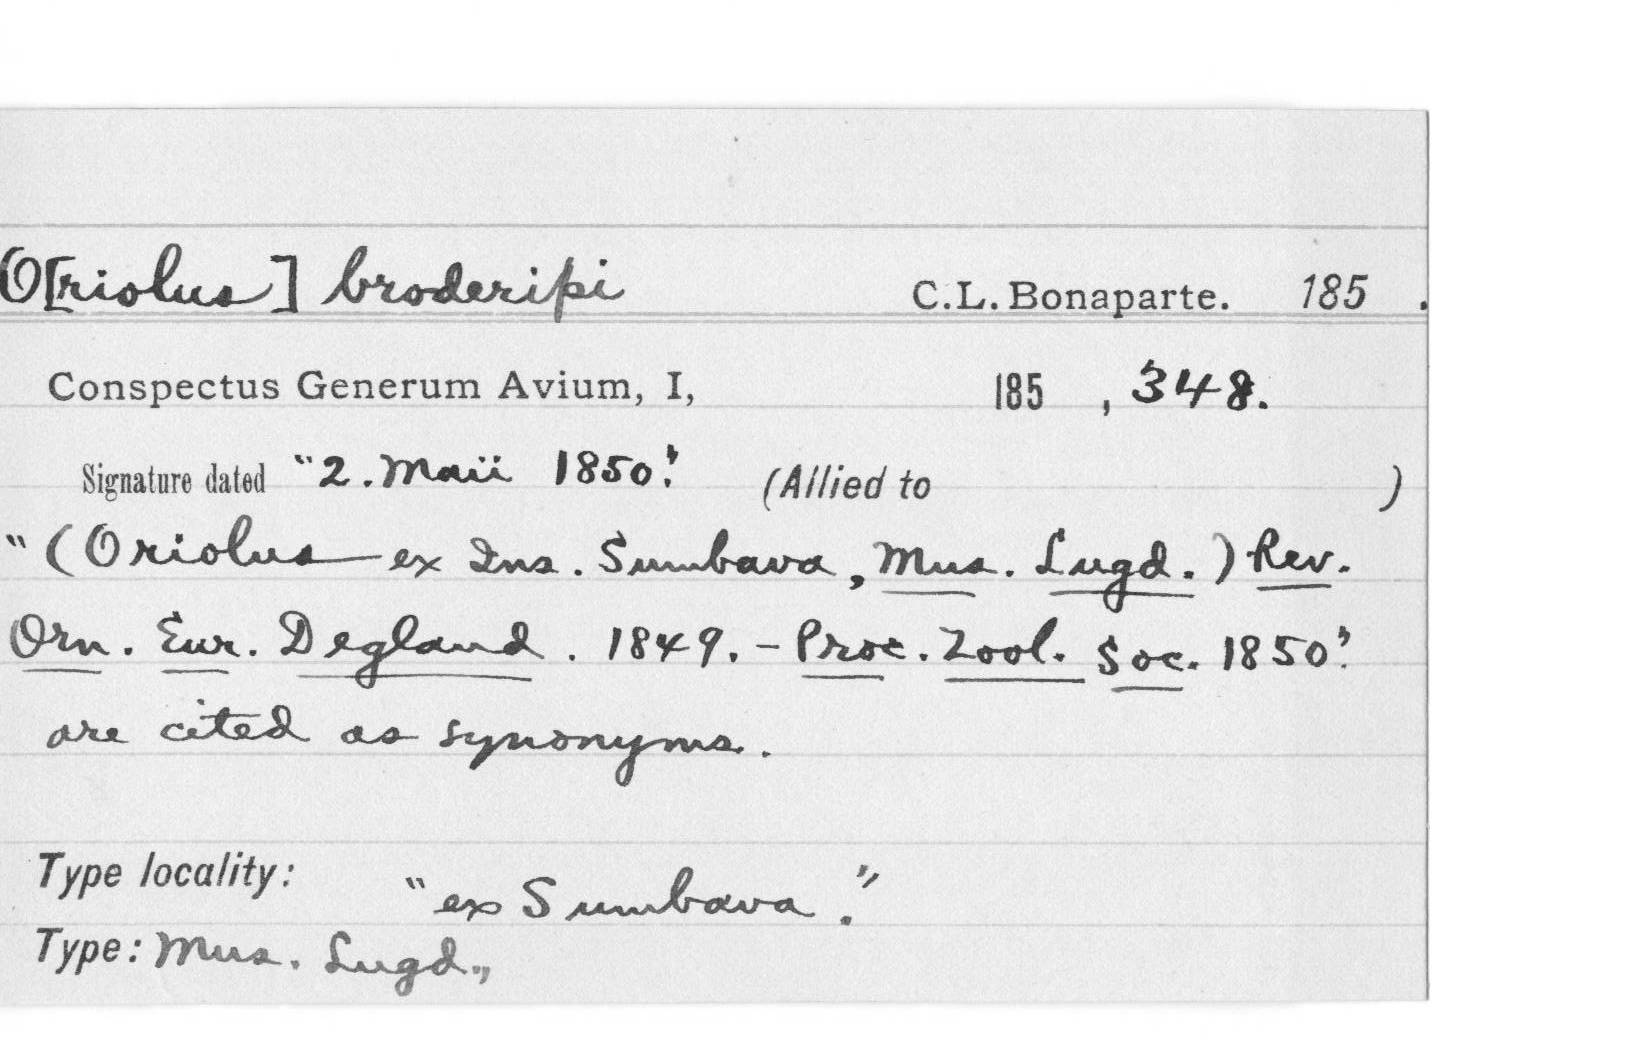 O[riolus] broderipi C.L. Bonaparte. 185 .
Conspectus Generum Avium, I, 185 , 348.
Signature dated "2. Maii 1850." (Allied to )
"(Oriolus ex Ins. Sumbava, Mus. Lugd.) Rev.
Orn. Eur. Degland. 1849. - Proc. Zool. Soc. 1850."
are cited as synonyms.
Type locality: "ex Sumbava."
Type: Mus. Lugd.,